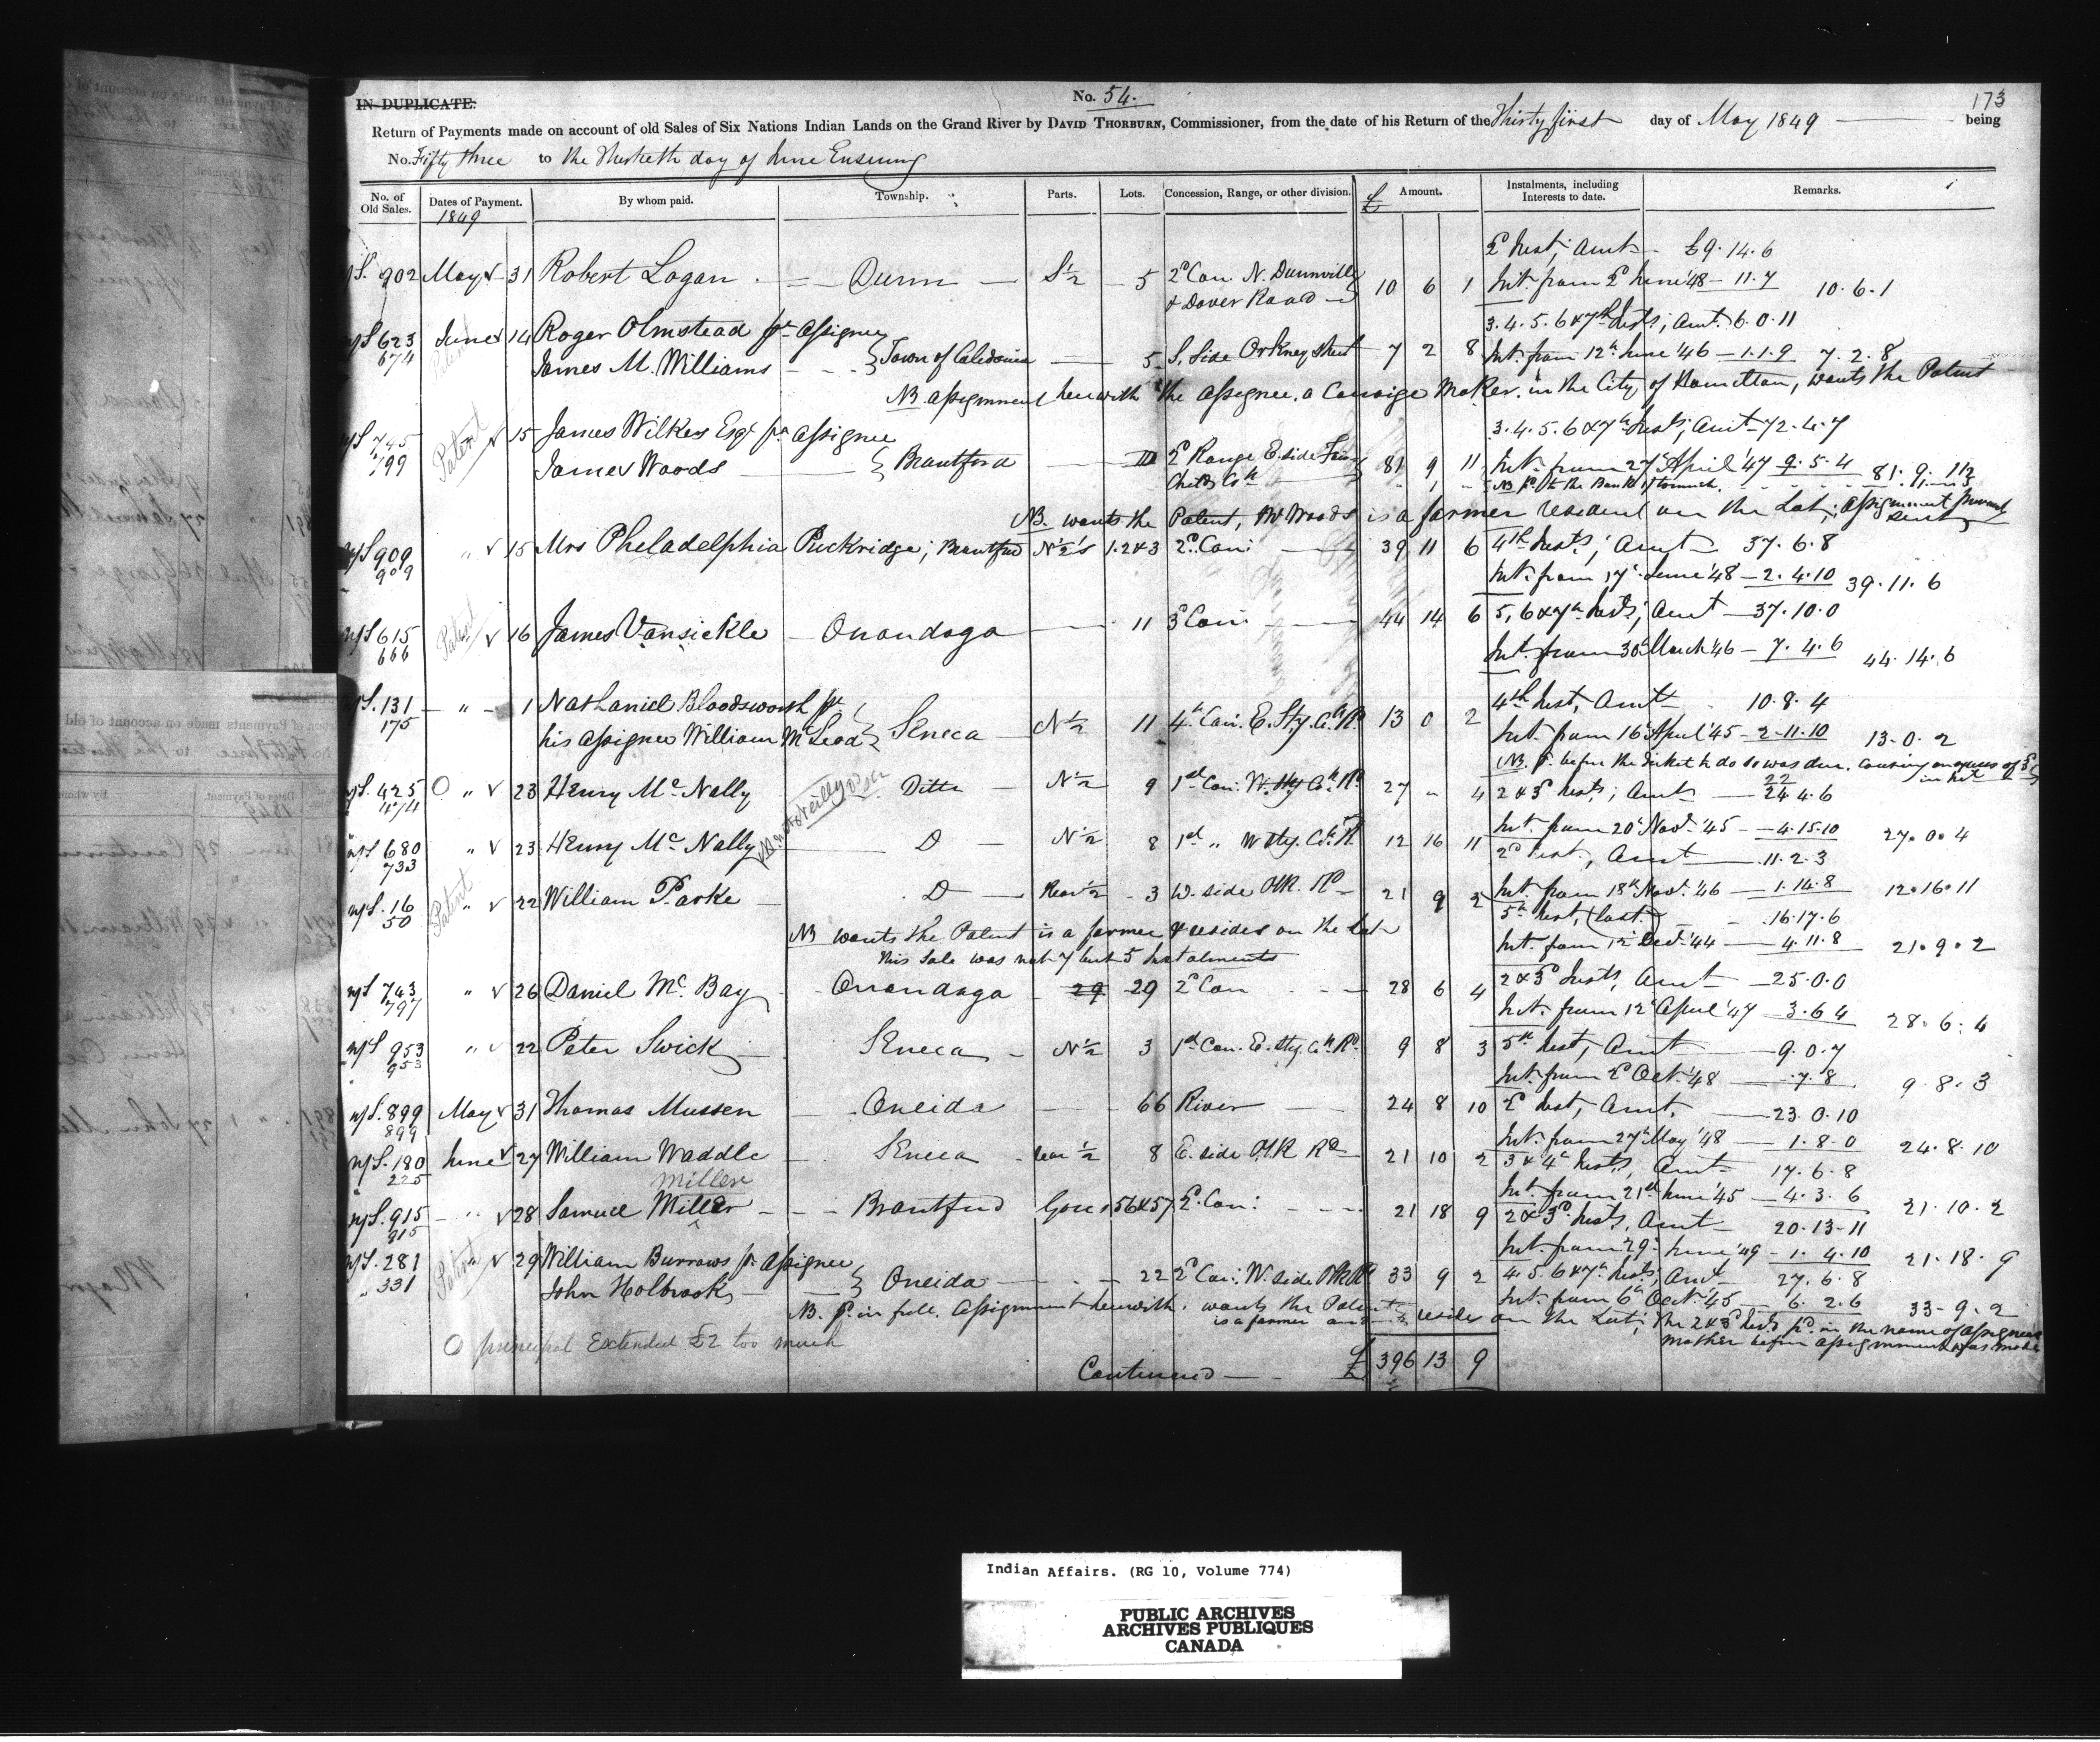 IN DUPLICATE.
No. 54.
173
Return of Payments made on account of old Sales of Six Nations Indian Lands on the Grand River by DAVID THORBURN, Commissioner, from the date of his Return of the Thirty first day of May 1849 being
No. Fifty three to the Thirtieth day of June Ensuing
No. of Old Sales. Dates of Payment. By whom paid. Township. Parts. Lots. Concession, Range, or other division. £ Amount. Instalments, including Interests to date. Remarks.
1849
Inst; Amt - £9.14.6
902 May 31 Robert Logan Dunn S½ 5 2d Con N. Dunnville 10 6 1 Int. from June '48 - 11.7 10.6.1
& Dover Road
3.4.5.6 & 7th Insts; Amt. 6.0.11
623 June 14 Roger Olmstead pr assignee
674 James M. Williams Town of Caledonia 5 S. Side Orkney street 7 2 8 Int. from 12th June '46 - 1.1.9 7.2.8
NB. assignment herewith the assignee, a Carraige Maker in the City of Hamilton, wants the Patent
3.4.5.6 & 7th Insts; Amt 72.4.7
745 Patent 15 James Wilkes Esqr pr assignee
799 James Woods Brantford 2d Range E. side 81 9 11 Int. from 27th April '47 9.5.4 81.9.11
NB pd to the Bank 1/ too much.
NB. wants the Patent, Mr Woods is a former resident on the Lot; assignment
909 " 15 Mrs Pheladelphia Puckridge; Brantford N½'s 1.2&3 2d Con: 39 11 6 4th Inst; Amt 37.6.8
909
Int. from 17th June '48 - 2.4.10 39.11.6
615 Patent 16 James Vansickle Onondaga 11 3d Con: 44 14 6 5, 6 & 7th Insts; Amt 37.10.0
666
Int. from 30th March '46 - 7.4.6 44.14.6
131 " 1 Nathaniel Bloodsworth pr 4th Inst, Amt 10.8.4
175 his assignee William McLeod Seneca N½ 11 4th Con. E. Sty. Ck. Rd. 13 0 2 Int. from 16th April '45 - 2.11.10 13.0.2
NB. pd. before the ticket to do so was due, causing
425 O " 23 Henry McNally Ditto N½ 9 1st Con. W. Sty Ck. Rd. 27 " 4 2 & 3d Insts; Amt 22
474 24 4.6
Int. from 20th Novr. '45 - 4.15.10 27.0.4
680 " 23 Henry McNally D N½ 8 1st " W Sty. Ck. R. 12 16 11 2d Inst., Amt 11.2.3
733
Int. from 18th Novr. '46 - 1.14.8 12.16.11
16 Patent " 22 William Parke D Rear½ 3 W. side Plk. Rd 21 9 2 5th Inst, (last.) 16.17.6
50
NB wants the Patent is a farmer & resides on the lot
Int. from 12th Decr. '44 - 4.11.8 21.9.2
This Sale was not 7 but 5 Instalments
743 " 26 Daniel McBay Onondaga 29 29 2d Con 28 6 4 2 & 3d Insts, Amt 25.0.0
797
Int. from 12th April '47 - 3.6.4 28.6.4
953 " 22 Peter Swick Seneca N½ 3 1st Con. E. sty. Ck. Rd. 9 8 3 5th Inst, Amt 9.0.7
953
Int. from 2d Oct. '48 - 7.8 9.8.3
899 May 31 Thomas Mussen Oneida 66 River 24 8 10 2d Inst, Amt. 23.0.10
899
Int. from 27th May '48 - 1.8.0 24.8.10
180 June 27 William Waddle Seneca rear ½ 8 E. side Plk Rd 21 10 2 3 & 4th Insts, Amt 17.6.8
225
Miller Int. from 21st June '45 - 4.3.6 21.10.2
915 " 28 Samuel Miller Brantford Gores 56&57 2d Con: 21 18 9 2 & 3d Insts, Amt 20.13.11
915
Int. from 29th June '49 - 1.4.10 21.18.9
281 Patent " 29 William Burrows pr assignee
331 John Holbrook Oneida 22 2d Con: W. side Plk Rd 33 9 2 4.5.6 & 7th Insts; Amt 27.6.8
Int. from 6th Octr. '45 - 6.2.6 33.9.2
NB. pd. in full. Assignment herewith. wants the Patent
is a farmer and resides on the Lot; the 2 & 3d Insts pd. in the name of assignees
mother before assignment was made
O principal Extended £2 too much
Continued £ 396 13 9
Indian Affairs. (RG 10, Volume 774)
PUBLIC ARCHIVES
ARCHIVES PUBLIQUES
CANADA